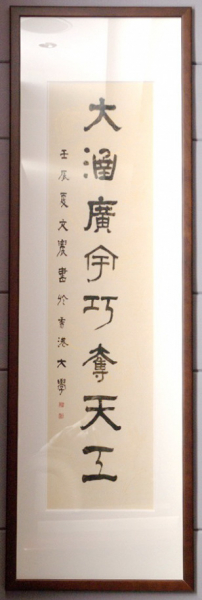 大涵廣宇巧奪天工
壬辰夏文書於香港大學